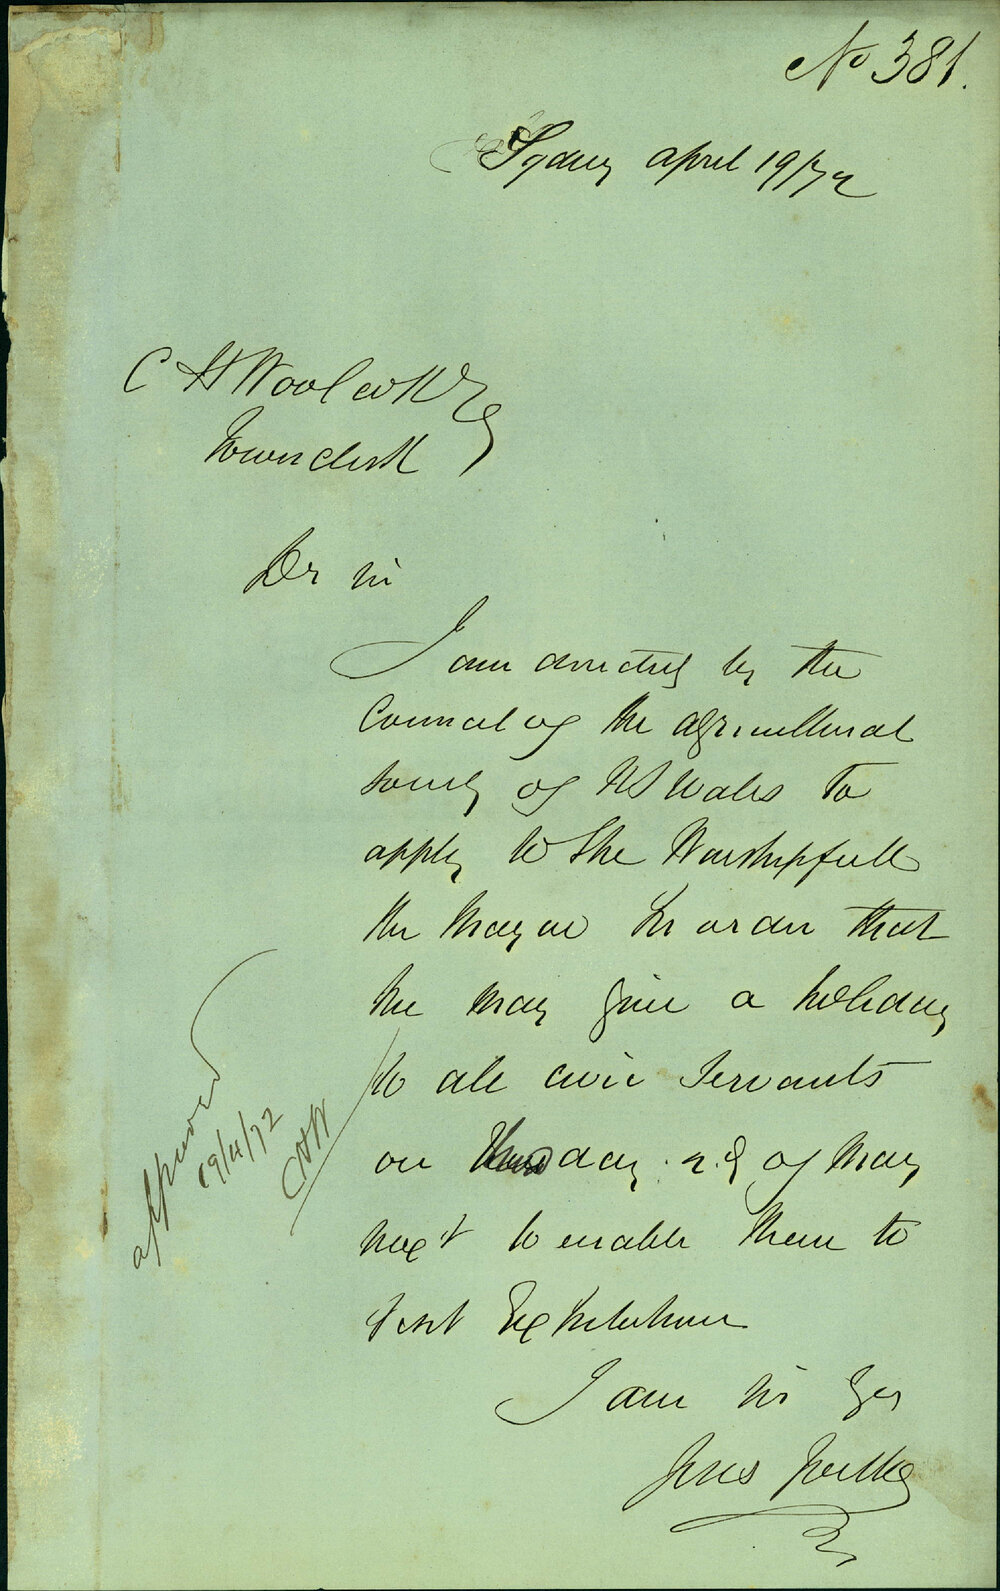 No 381.
Sydney April 19/72
C H Woolcott Esq
Town Clerk
Dr Sir
I am directed by the
Council of the Agricultural
Society of NS Wales to
apply to the Worshipfull
the Mayor in order that
he may give a holiday
to all civic Servants
on day 2 of May
next to enable them to
visit Exhibition
I am Sir Yrs
Jules Joubert
approved
19/4/72
CHW